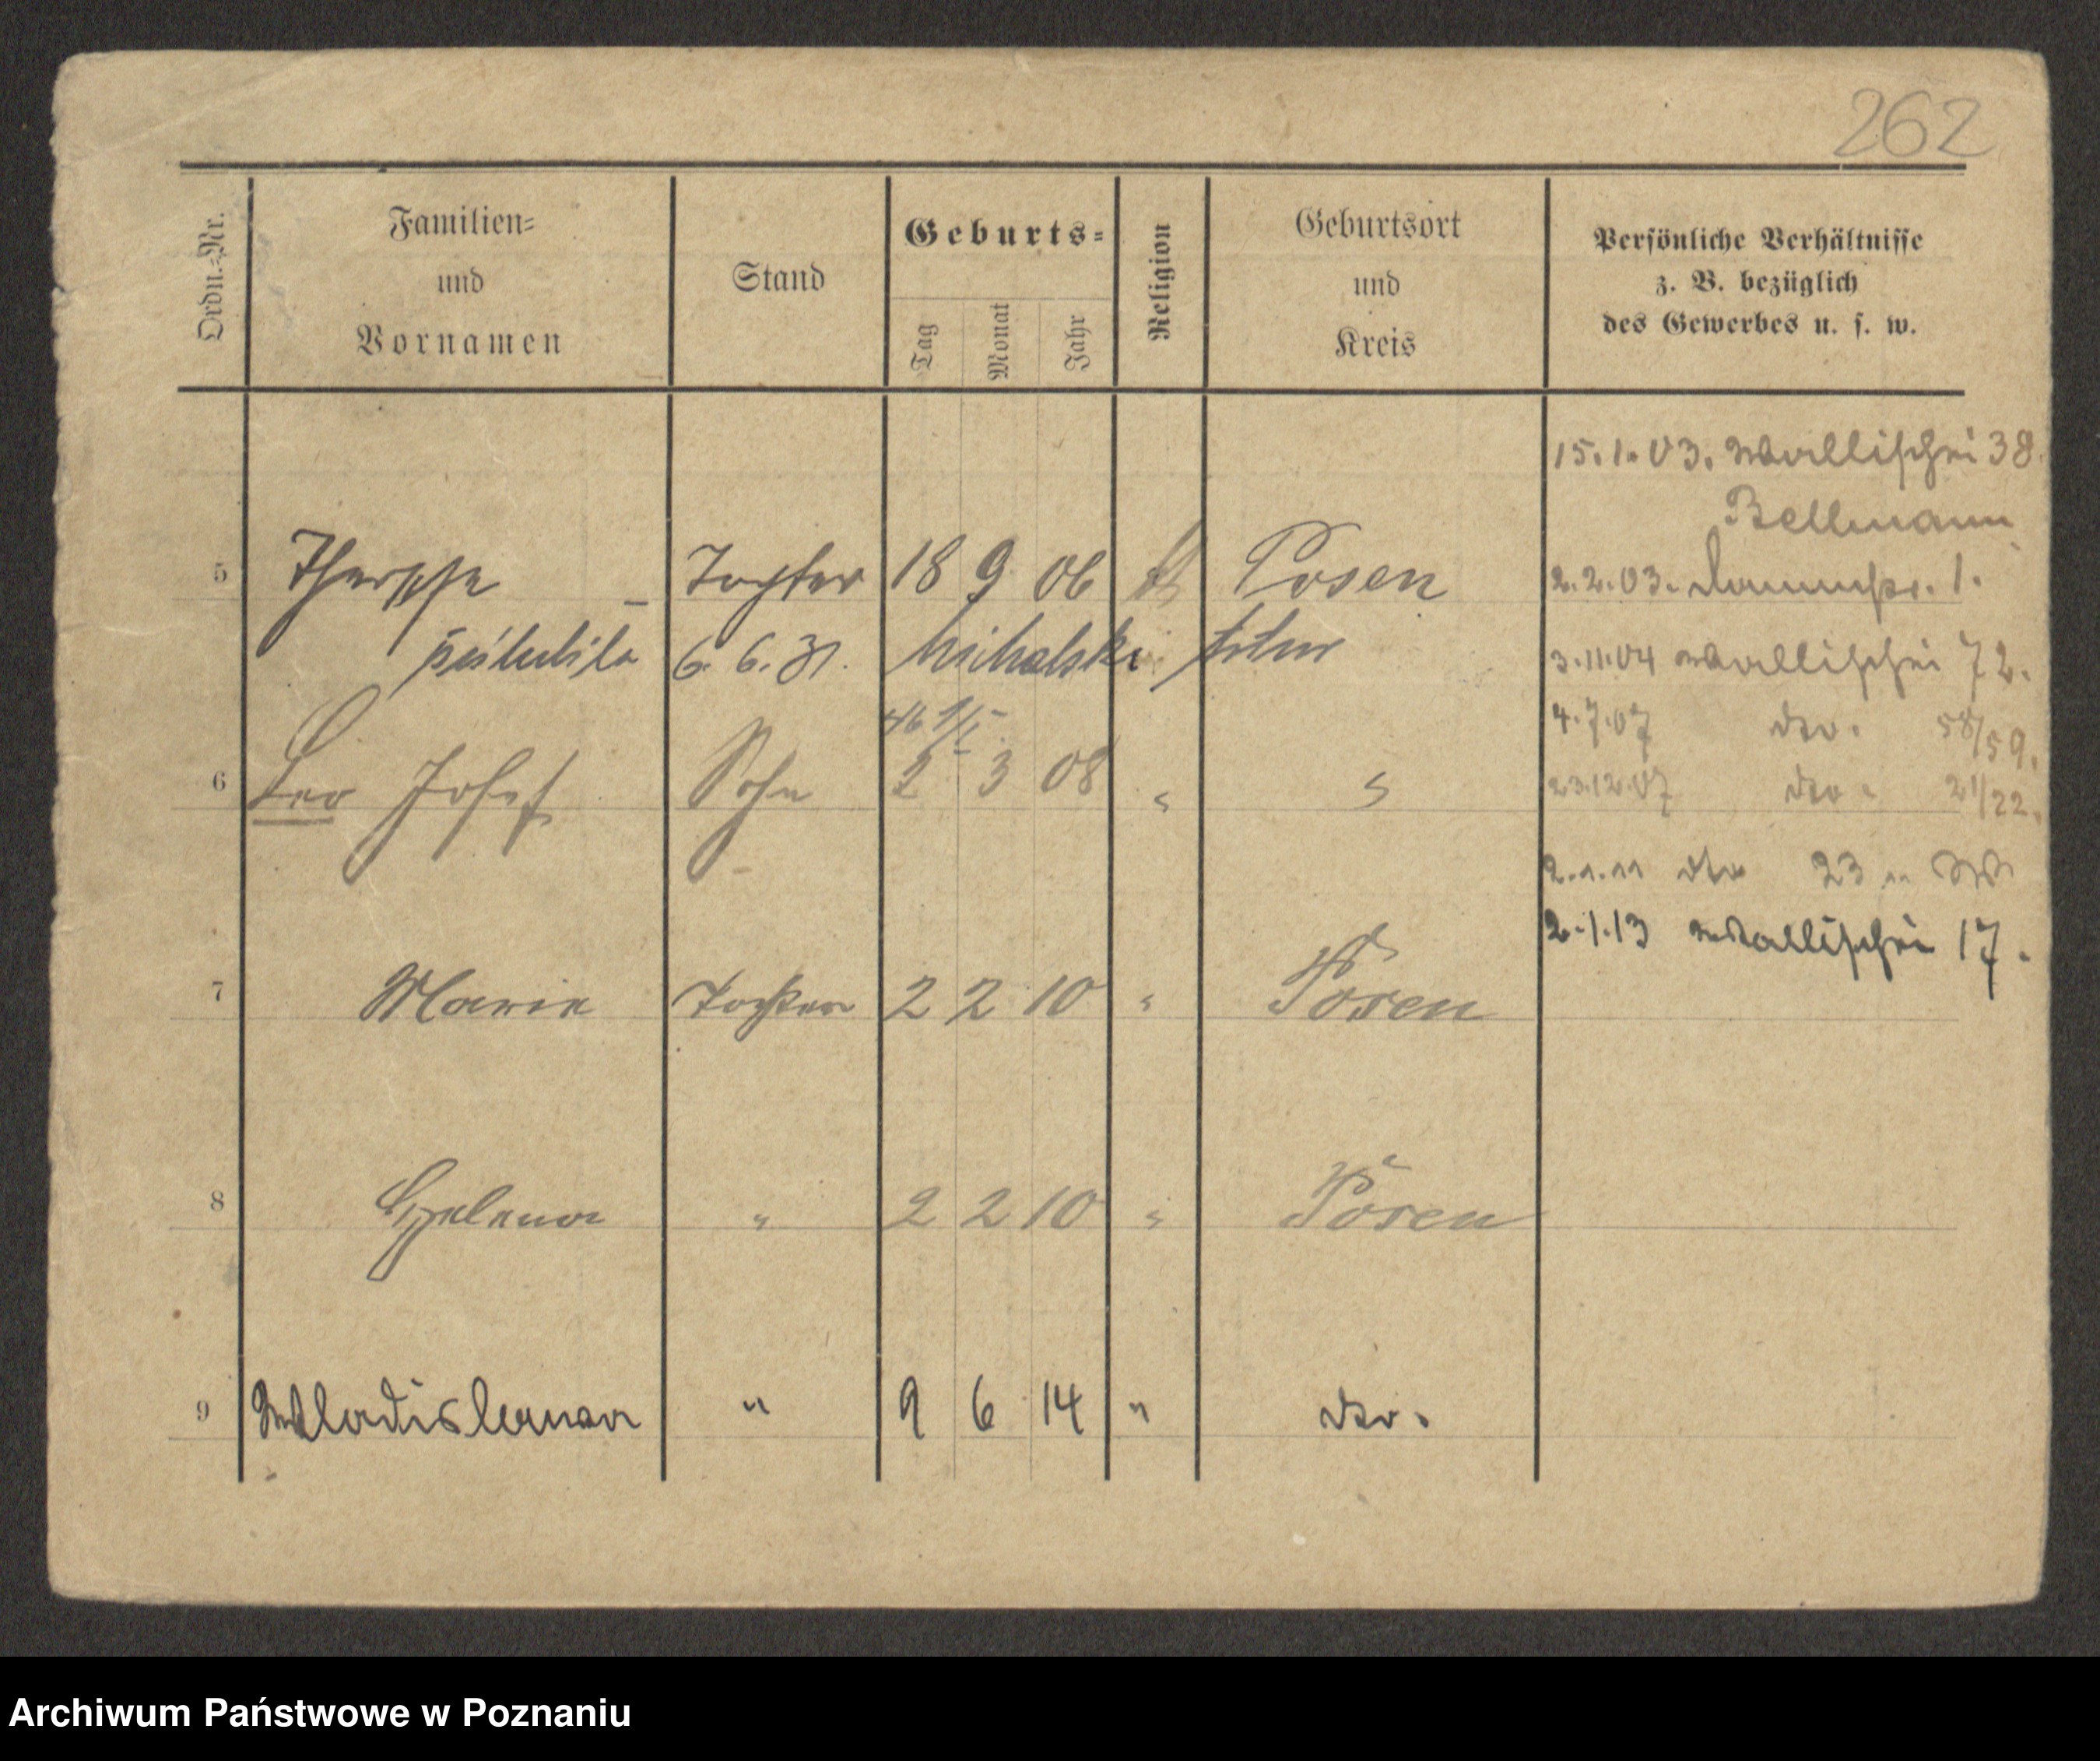 262
Ordn.-Nr.
Familien-
und
Vornamen
Stand
Geburts-
Tag
Monat
Jahr
Religion
Geburtsort
und
Kreis
Persönliche Verhältnisse
z. B. bezüglich
des Gewerbes u. s. w.
15.1.03. Wallischei 38.
Bellmann
5 Tochter 18 9 06 Posen
2.2.03. 1.
poślubiła 6.6.31. Michalski
3.11.04 Wallischei 72.
4.7.07 dto. 58/59.
6 Leo Josef Sohn 2 3 08 " "
23.12.07 dto. 21/22.
2.1.11 dto 23
2.1.13 Wallischei 17.
7 Marie Tochter 2 2 10 " Posen
8 Helena " 2 2 10 " Posen
9 Wladislawa " 9 6 14 " dto.
Archiwum Państwowe w Poznaniu